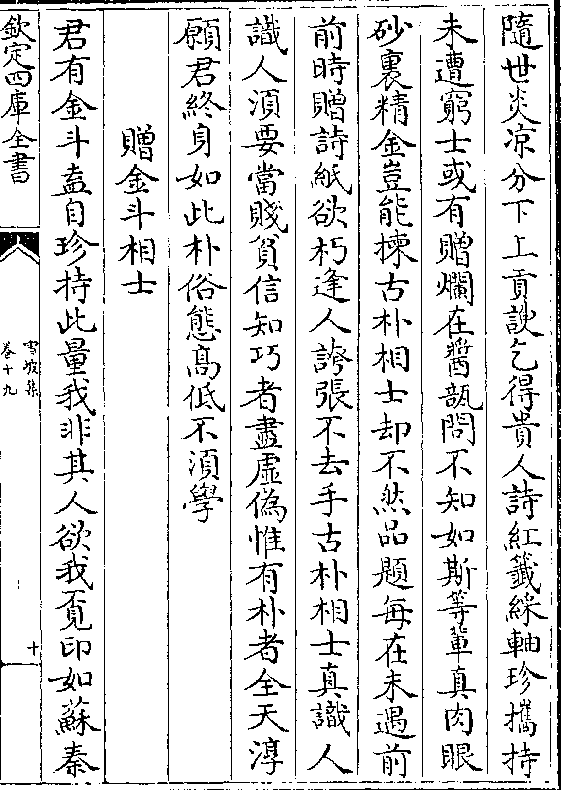 隨世炎凉分下上貢諛乞得貴人詩紅籤綵軸珍攜持
未遭窮士或有贈爛在醬瓿問不知如斯等輩真肉眼
砂裏精金豈能揀古朴相士却不然品題每在未遇前
前時贈詩紙欲朽逢人誇張不去手古朴相士真識人
識人須要當賤貧信知巧者盡虛偽惟有朴者全天淳
願君終身如此朴俗態髙低不須學
贈金斗相士
君有金斗盍自珍持此量我非其人欲我覓印如蘇秦
欽定四庫全書
雪坡集
卷十九
十